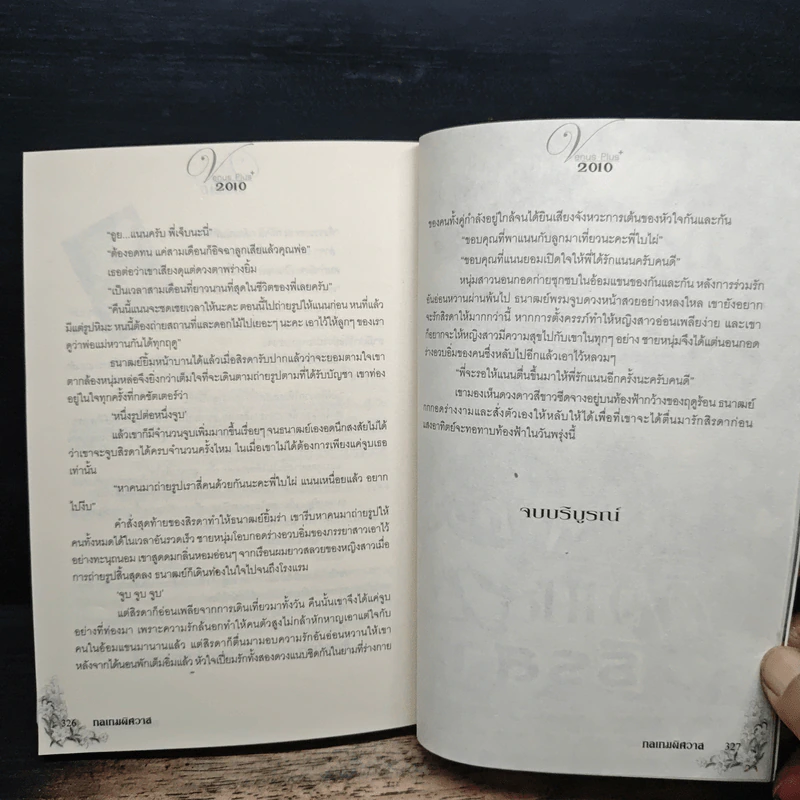 Venus Plus+
2010
"อูย...แนนครับ พี่เจ็บนะนี่"
"ต้องอดทน แค่สามเดือนก็อิจฉาลูกเสียแล้วคุณพ่อ"
เธอต่อว่าเขาเสียงดุแต่ดวงตาพร่างยิ้ม
"เป็นเวลาสามเดือนที่ยาวนานที่สุดในชีวิตของพี่เลยครับ"
"คืนนี้แนนจะชดเชยเวลาให้นะคะ ตอนนี้ไปถ่ายรูปให้แนนก่อน หนที่แล้ว
มีแต่รูปหิมะ หนนี้ต้องถ่ายสถานที่และดอกไม้ไปเยอะๆ นะคะ เอาไว้ให้ลูกๆ ของเรา
ดูว่าพ่อแม่หวานกันได้ทุกฤดู"
ธนาฒย์ยิ้มหน้าบานได้แล้วเมื่อสิรดารับปากแล้วว่าจะยอมตามใจเขา
ตากล้องหนุ่มหล่อจึงยิ่งกว่าเต็มใจที่จะเดินตามถ่ายรูปตามที่ได้รับบัญชา เขาท่อง
อยู่ในใจทุกครั้งที่กดชัตเตอร์ว่า
'หนึ่งรูปต่อหนึ่งจูบ'
แล้วเขาก็มีจำนวนจูบเพิ่มมากขึ้นเรื่อยๆ จนธนาฒย์เองอดนึกสงสัยไม่ได้
ว่าเขาจะจูบสิรดาได้ครบจำนวนครั้งไหม ในเมื่อเขาไม่ได้ต้องการเพียงแค่จูบเธอ
เท่านั้น
"หาคนมาถ่ายรูปเราสี่คนด้วยกันนะคะพี่ใบไผ่ แนนเหนื่อยแล้ว อยาก
ไปงีบ"
คำสั่งสุดท้ายของสิรดาทำให้ธนาฒย์ยิ้มร่า เขารีบหาคนมาถ่ายรูปให้
คนทั้งหมดได้ในเวลาอันรวดเร็ว ชายหนุ่มโอบกอดร่างอวบอิ่มของภรรยาสาวเอาไว้
อย่างทะนุถนอม เขาสูดดมกลิ่นหอมอ่อนๆ จากเรือนผมยาวสลวยของหญิงสาวเมื่อ
การถ่ายรูปสิ้นสุดลง ธนาฒย์ก็เดินท่องในใจไปจนถึงโรงแรม
'จูบ จูบ จูบ'
แต่สิรดาก็อ่อนเพลียจากการเดินเที่ยวมาทั้งวัน คืนนั้นเขาจึงได้แค่จูบ
อย่างที่ท่องมา เพราะความรักล้นอกทำให้คนตัวสูงไม่กล้าหักหาญเอาแต่ใจกับ
คนในอ้อมแขนมานานแล้ว แต่สิรดาก็ตื่นมามอบความรักอันอ่อนหวานให้เขา
หลังจากได้นอนพักเต็มอิ่มแล้ว หัวใจเปี่ยมรักทั้งสองดวงแนบชิดกันในยามที่ร่างกาย
326 กลเกมพิศวาส
Venus Plus+
2010
ของคนทั้งคู่กำลังอยู่ใกล้จนได้ยินเสียงจังหวะการเต้นของหัวใจกันและกัน
"ขอบคุณที่พาแนนกับลูกมาเที่ยวนะคะพี่ใบไผ่"
"ขอบคุณที่แนนยอมเปิดใจให้พี่ได้รักแนนครับคนดี"
หนุ่มสาวนอนกอดก่ายซุกซบในอ้อมแขนของกันและกัน หลังการร่วมรัก
อันอ่อนหวานผ่านพ้นไป ธนาฒย์พรมจูบดวงหน้าสวยอย่างหลงใหล เขายังอยาก
จะรักสิรดาให้มากกว่านี้ หากการตั้งครรภ์ทำให้หญิงสาวอ่อนเพลียง่าย และเขา
ก็อยากจะให้หญิงสาวมีความสุขไปกับเขาในทุกๆ อย่าง ชายหนุ่มจึงได้แต่นอนกอด
ร่างอวบอิ่มของคนซึ่งหลับไปอีกแล้วเอาไว้หลวมๆ
"พี่จะรอให้แนนตื่นขึ้นมาให้พี่รักแนนอีกครั้งนะครับคนดี"
เขามองเห็นดวงดาวสีขาวซีดจางอยู่บนท้องฟ้ากว้างของฤดูร้อน ธนาฒย์
กกกอดร่างงามและสั่งตัวเองให้หลับให้ได้เพื่อที่เขาจะได้ตื่นมารักสิรดาก่อน
แสงอาทิตย์จะทอทาบท้องฟ้าในวันพรุ่งนี้
จบบริบูรณ์
กลเกมพิศวาส 327